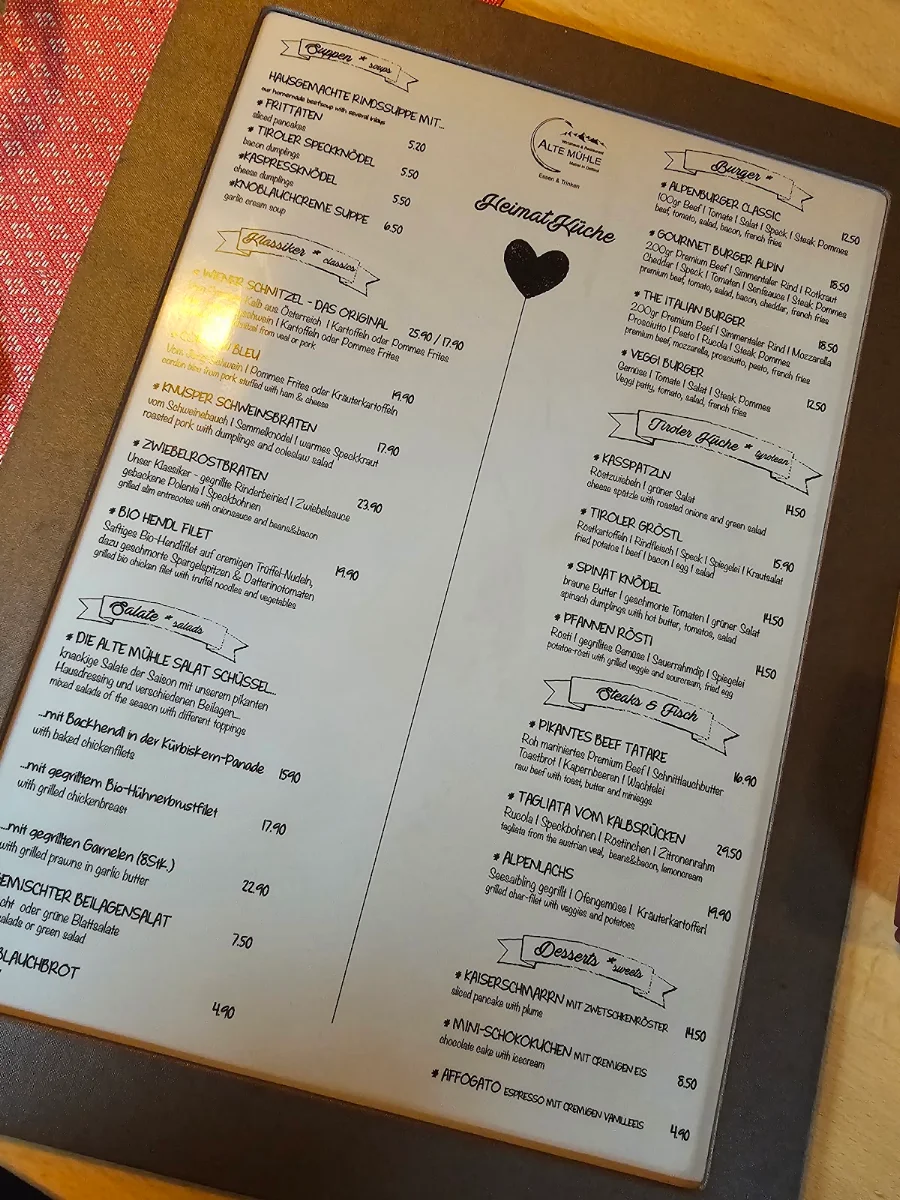 Suppen * soups
HAUSGEMACHTE RINDSSUPPE MIT...
our homemade beefsoup with several inlays
* FRITTATEN 5.20
sliced pancakes
* TIROLER SPECKKNÖDEL 5.50
bacon dumplings
*KASPRESSKNÖDEL 5.50
cheese dumplings
*KNOBLAUCHCREME SUPPE 6.50
garlic cream soup
Klassiker * classics
* WIENER SCHNITZEL - DAS ORIGINAL 25.90 / 17.90
Kalb aus Österreich | Kartoffeln oder Pommes Frites
schwein | Kartoffeln oder Pommes Frites
from veal or pork
BLEU 19.90
Vom schwein | Pommes Frites oder Kräuterkartoffeln
cordon bleu from pork stuffed with ham & cheese
* KNUSPER SCHWEINSBRATEN 17.90
vom Schweinebauch | Semmelknödel | warmes Speckkraut
roasted pork with dumplings and coleslaw salad
* ZWIEBELROSTBRATEN 23.90
Unser Klassiker - gegrillte Rinderbeiried | Zwiebelsauce
gebackene Polenta | Speckbohnen
grilled slim entrecotes with onionsauce and beans&bacon
* BIO HENDL FILET 19.90
Saftiges Bio-Hendlfilet auf cremigen Trüffel-Nudeln,
dazu geschmorte Spargelspitzen & Datterinotomaten
grilled bio chicken filet with truffel noodles and vegetables
Salate * salads
* DIE ALTE MÜHLE SALAT SCHÜSSEL...
knackige Salate der Saison mit unserem pikanten
Hausdressing und verschiedenen Beilagen...
mixed salads of the season with different toppings
...mit Backhendl in der Kürbiskern-Panade 15.90
with baked chickenfilets
...mit gegrilltem Bio-Hühnerbrustfilet 17.90
with grilled chickenbreast
...mit gegrillten Garnelen (8Stk.) 22.90
with grilled prawns in garlic butter
EMISCHTER BEILAGENSALAT 7.50
cht oder grüne Blattsalate
alads or green salad
BLAUCHBROT 4.90
Wirtshaus & Restaurant
ALTE MÜHLE
Essen & Trinken
HeimatKüche
Burger *
* ALPENBURGER CLASSIC 12.50
100gr Beef | Tomate | Salat | Speck | Steak Pommes
beef, tomato, salad, bacon, french fries
* GOURMET BURGER ALPIN 18.50
200gr Premium Beef | Simmentaler Rind | Rotkraut
Cheddar | Speck | Tomaten | Senfsauce | Steak Pommes
premium beef, tomato, salad, bacon, cheddar, french fries
* THE ITALIAN BURGER 18.50
200gr Premium Beef | Simmentaler Rind | Mozzarella
Prosciutto | Pesto | Rucola | Steak Pommes
premium beef, mozzarella, prosciutto, pesto, french fries
* VEGGI BURGER 12.50
Gemüse | Tomate | Salat | Steak Pommes
Veggi patty, tomato, salad, french fries
Tiroler Küche * tyrolean
* KASSPATZLN 14.50
Röstzwiebeln | grüner Salat
cheese spätzle with roasted onions and green salad
* TIROLER GRÖSTL 15.90
Röstkartoffeln | Rindfleisch | Speck | Spiegelei | Krautsalat
fried potatos | beef | bacon | egg | salad
* SPINAT KNÖDEL 14.50
braune Butter | geschmorte Tomaten | grüner Salat
spinach dumplings with hot butter, tomatos, salad
* PFANNEN RÖSTI 14.50
Rösti | gegrilltes Gemüse | Sauerrahmdip | Spiegelei
potatoe-rösti with grilled veggie and sourcream, fried egg
Steaks & Fisch
* PIKANTES BEEF TATARE 16.90
Roh mariniertes Premium Beef | Schnittlauchbutter
Toastbrot | Kapernbeeren | Wachtelei
raw beef with toast, butter and minieggs
* TAGLIATA VOM KALBSRÜCKEN 29.50
Rucola | Speckbohnen | Rostinchen | Zitronenrahm
tagliata from the austrian veal, beans&bacon, lemoncream
* ALPENLACHS 19.90
Seesaibling gegrillt | Ofengemüse | Kräuterkartofferl
grilled char-filet with veggies and potatoes
Desserts * sweets
* KAISERSCHMARRN MIT ZWETSCHKENRÖSTER 14.50
sliced pancake with plume
* MINI-SCHOKOKUCHEN MIT CREMIGEN EIS 8.50
chocolate cake with icecream
* AFFOGATO ESPRESSO MIT CREMIGEN VANILLEEIS 4.90